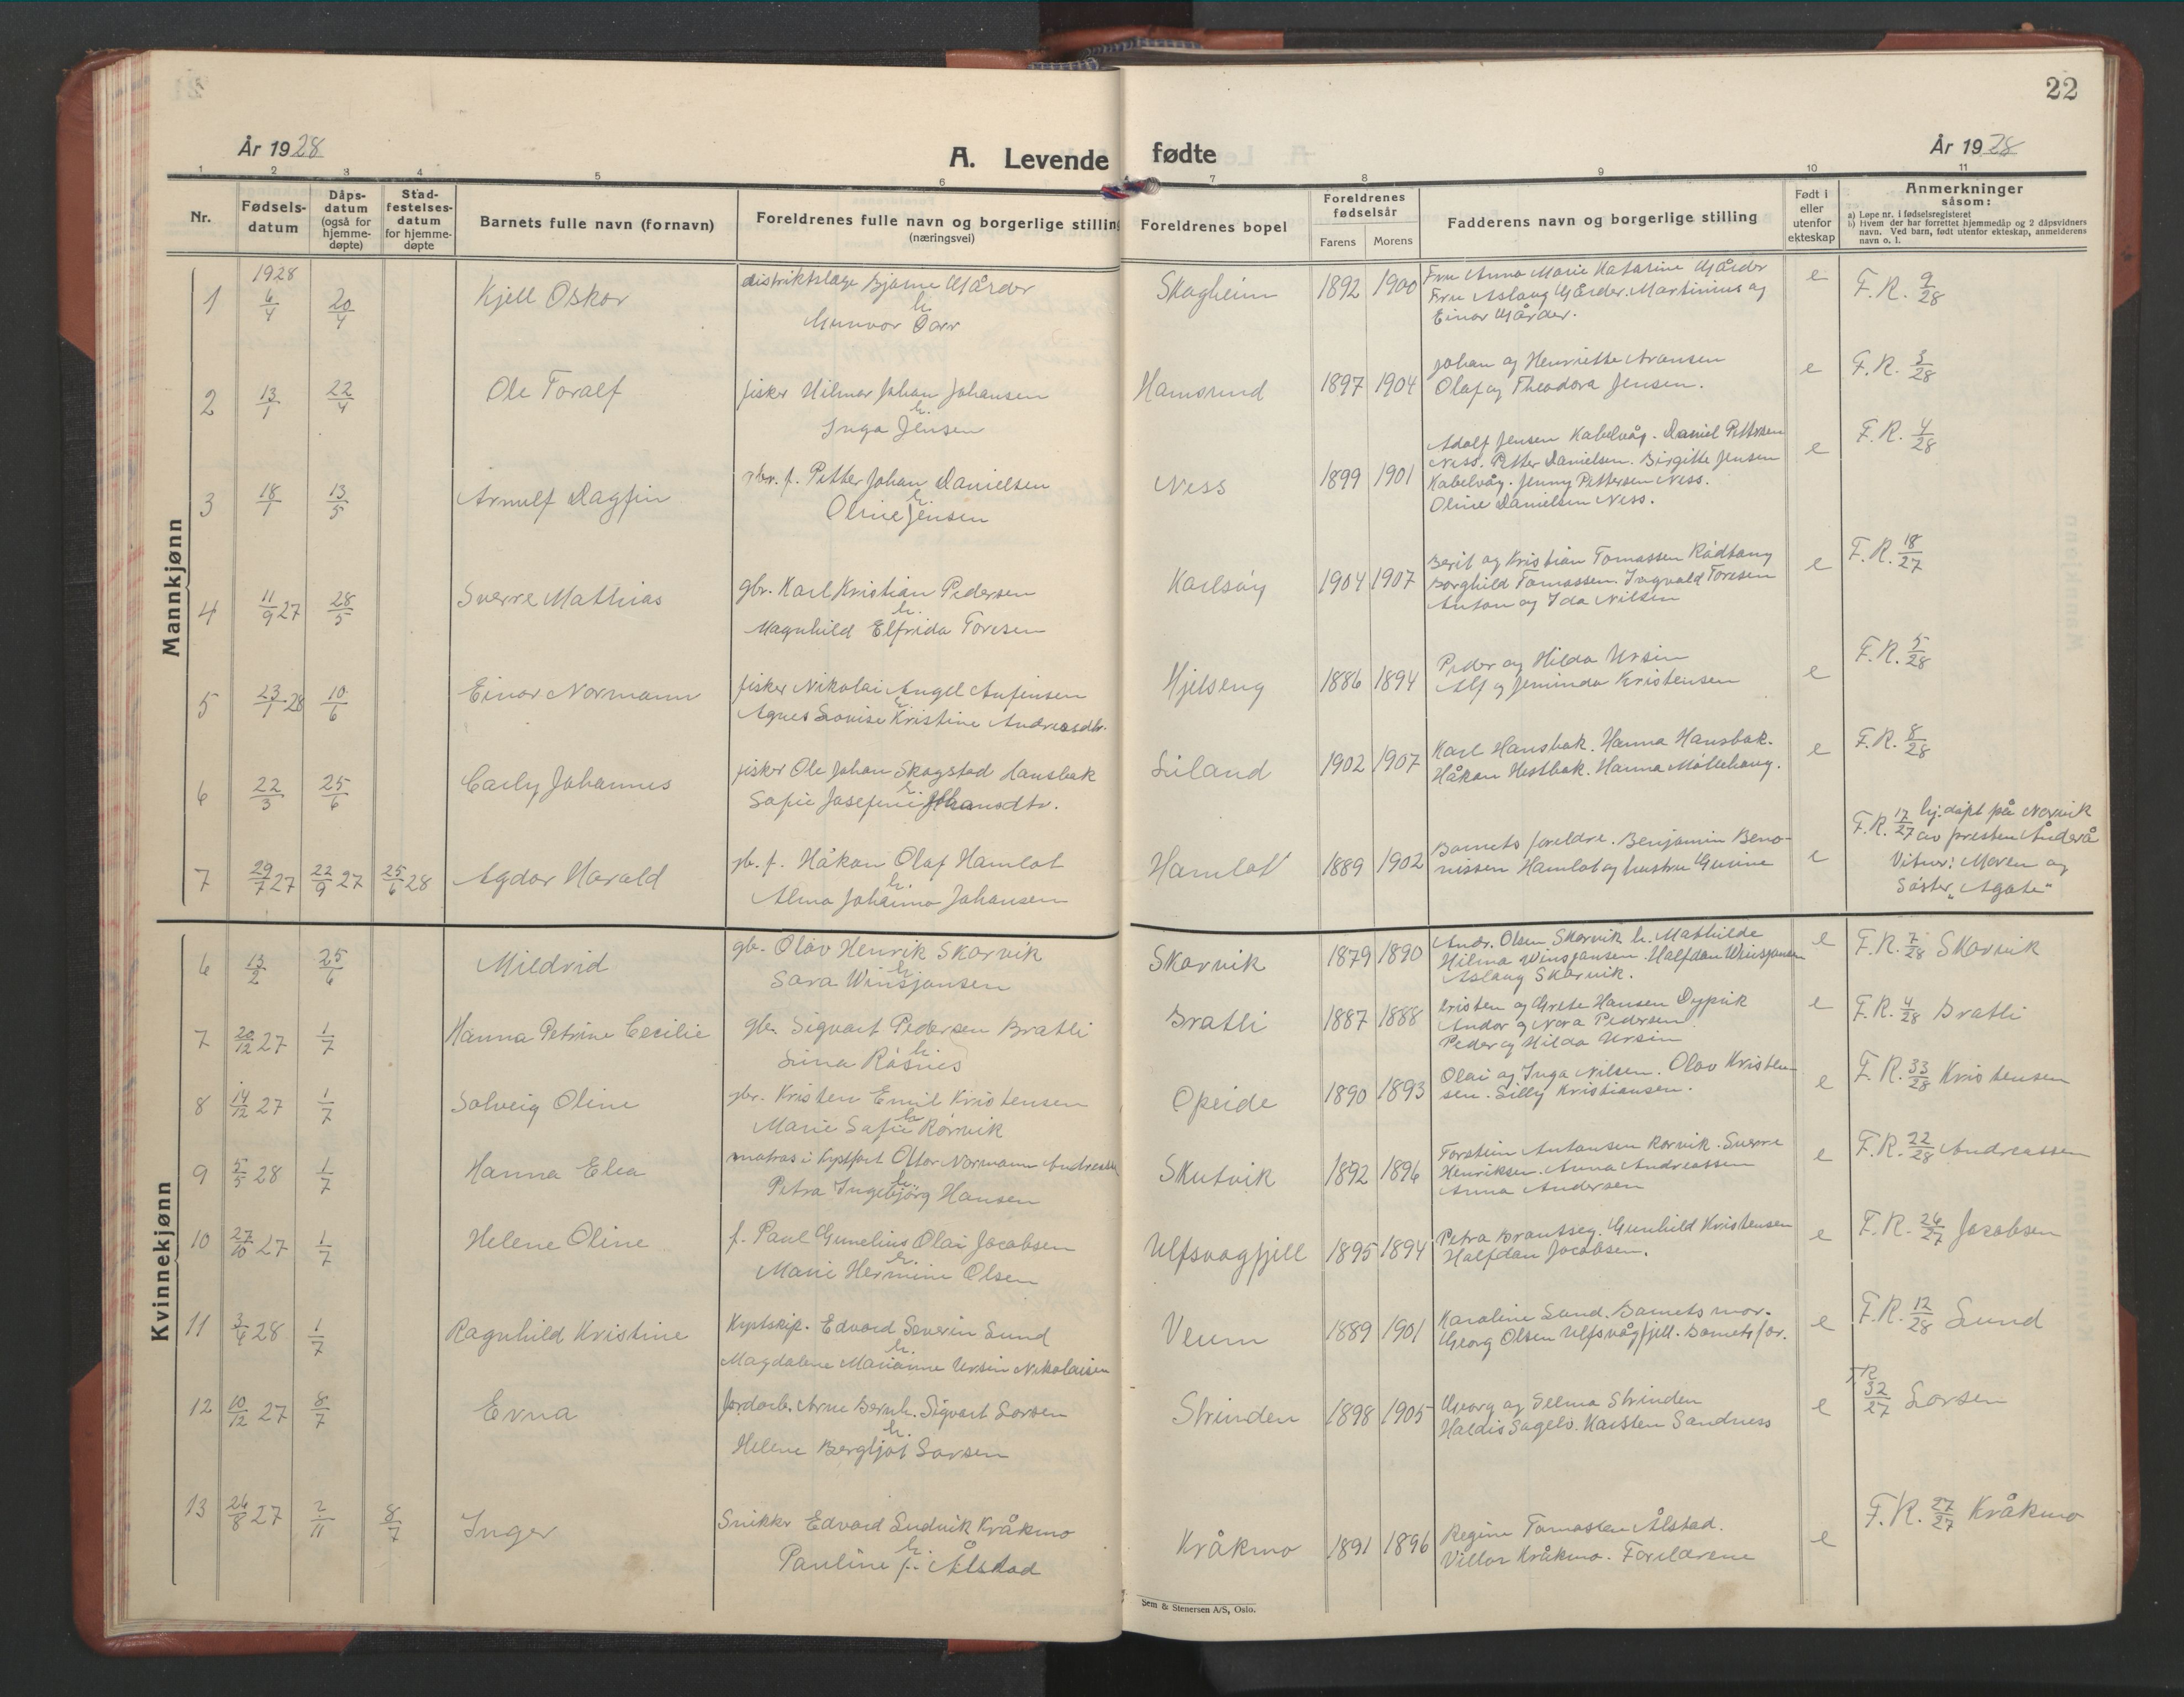 22
År 1928
A. Levende fødte
År 1928
1 2 3 4 5 6 7 8 9 10 11
Nr.
Fødselsdatum
Dåpsdatum (også for hjemmedøpte)
Stadfestelsesdatum for hjemmedøpte
Barnets fulle navn (fornavn)
Foreldrenes fulle navn og borgerlige stilling (næringsvei)
Foreldrenes bopel
Foreldrenes fødselsår
Farens Morens
Fadderens navn og borgerlige stilling
Født i eller utenfor ekteskap
Anmerkninger såsom:
a) Løpe nr. i fødselsregisteret
b) Hvem der har forrettet hjemmedåp og 2 dåpsvidners navn. Ved barn, født utenfor ekteskap, anmelderens navn o. l.
Mannkjønn
1928
1 6/4 20/4 Kjell Oskar distriktslæge Bjarne Gårder Skogheim 1892 1900 Fru Anna Marie Katarine Gårder e F.R. 9/28
h. Fru Aslaug Gårder. Martinius og
Gunvor Darr Einar Gårder.
2 13/1 22/4 Ole Toralf fisker Hilmar Johan Johansen Hamsund 1897 1904 Johan og Henriette Aronsen e F.R. 3/28
h. Olaf og Theodora Jensen.
Inga Jensen
3 18/1 13/5 Arnulf Dagfin gbr. f. Petter Johan Danielsen Ness 1899 1901 Adolf Jensen Kabelvåg. Daniel Pettersen e F.R. 4/28
h. Ness. Petter Danielsen. Birgitte Jensen
Oline Jensen Kabelvåg. Jenny Pettersen Ness.
Oline Danielsen Ness.
4 11/9 27 28/5 Sverre Mathias gbr. Karl Kristian Pedersen Karlsøy 1904 1907 Berit og Kristian Tomassen Rådtang e F.R. 18/27
h. Borghild Tomassen. Ingvald Toresen
Magnhild Elfrida Toresen Anton og Ida Nilsen
5 23/1 28 10/6 Einar Normann fisker Nikolai Angel Anfinsen Hjelseng 1886 1894 Peder og Hilda Ursin e F.R. 5/28
h. Alf og Jeminda Kristensen
Agnes Lovise Kristine Andreasdtr.
6 22/3 25/6 Carly Johannes fisker Ole Johan Skogstad Hansbak Liland 1902 1907 Karl Hansbak. Hanna Hansbak. e F.R. 8/28
h. Håkon Hestbak. Hanna Mollehaug.
Safie Josefine
7 29/7 27 22/9 27 25/6 28 Agdar Harald gb. f. Håkon Olaf Hamlot Hamlot 1889 1902 Barnets foreldre. Benjamin Beno- e F.R. 17/27 hj. døpt på Narvik
h. nissen Hamlot og hustru av presten
Alma Johanna Johansen Vitner: Moren og
Søster „Agate"
Kvinnekjønn
6 13/2 25/6 Mildrid gb. Olav Henrik Skarvik Skarvik 1879 1890 Andr. Olsen Skarvik h. Mathilde e F.R. 7/28 Skarvik
h. Hilma Winsjansen. Halfdan Winsjansen
Sara Winsjansen Aslaug Skarvik.
7 20/12 27 1/7 Hanna Petrine Cecilie gbr. Sigvart Pedersen Bratli Bratli 1887 1888 Kristen og Grete Hansen Dypvik e F.R. 4/28 Bratli
h. Andor og Nora Pedersen.
Lina Råsnes Peder og Hilda Ursin
8 14/12 27 1/7 Solveig Oline gbr. Kristen Emil Kristensen Opeide 1890 1893 Olai og Inga Nilsen. Olav Kristen- e F.R. 33/28 Kristensen
h. sen. Silly Kristiansen.
Marie Safie Rørvik
9 5/5 28 1/7 Hanna Elea matros i kystfart Ottar Normann Andreassen Skutvik 1892 1896 Torstein Antonsen Rørvik. Sverre e F.R. 22/28 Andreassen
h. Henriksen. Anna Andreassen
Petra Ingebjørg Hansen Anna Andersen
10 27/10 27 1/7 Helene Oline f. Paul Gunelius Olai Jacobsen Ulfsvogfjell 1895 1894 Petra Brautseg. Gunhild Kristensen e F.R. 26/27 Jacobsen
h. Halfdan Jacobsen.
Marie Hermine Olsen
11 3/4 28 1/7 Ragnhild Kristine Kystskip. Edvard Severin Sund Veum 1889 1901 Karoline Sund. Barnets mor. e F.R. 12/28 Sund
h. Georg Olsen Ulfsvågfjell. Barnets far.
Magdalene Marianne Ursin Nikolaisen
12 10/12 27 8/7 Erna Jordarb. Arne Bernh. Sigvart Larsen Strinden 1898 1905 Georg og Selma Strinden e F.R. 32/27 Larsen
h. Haldis Sagelv. Karsten Sandness
Helene Bergljot Larsen
13 26/8 27 2/11 8/7 Inger Snikker Edvard Ludvik Kråkmo Kråkmo 1891 1896 Regine Tomassen Ålstad. e F.R. 27/27 Kråkmo
h. Villar Kråkmo. Foreldrene
Pauline f. Ålstad
Sem & Stenersen A/S, Oslo.